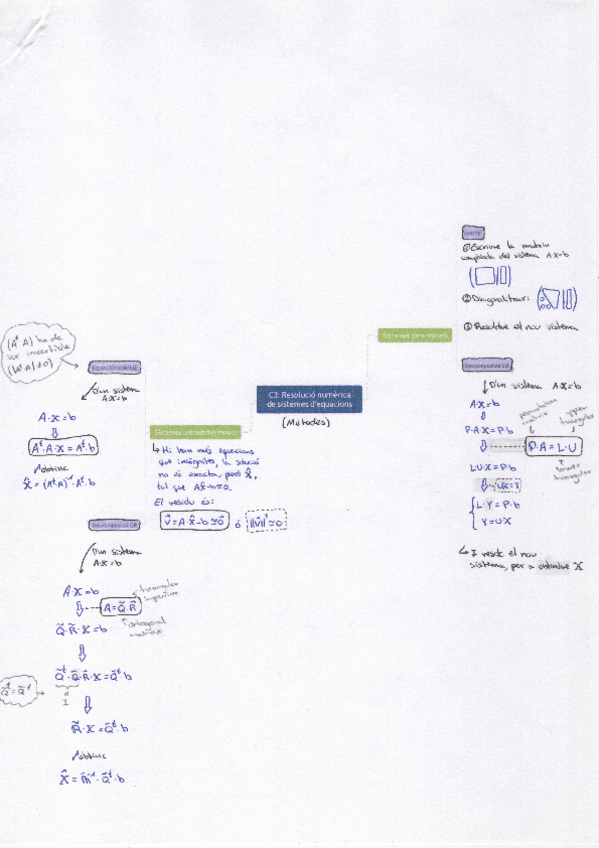 C3: Resolució numèrica
de sistemes d'equacions
(Mètodes)
① Escriure la matriu
ampliada del sistema A·x=b
② Diagonalitzar:
③ Resoldre el nou sistema
D'un sistema A·x=b
A·x=b
P·A·X=P·b
P·A=L·U
permutation
matrix
upper
triangular
lower
triangular
L·U·X=P·b
U·X=Y
L·Y=P·b
Y=U·X
↳ I resolc el nou
sistema, per a obtindre X
↳ Hi han més equacions
que incògnites, la solució
no és exacta, però x̂,
tal que Ax̂-b≃0.
El residu és:
v⃗=A·x̂-b≃0⃗ ó ||v⃗||≃0
EQUACIÓ NORMAL
(Aᵗ·A) ha de
ser invertible
(|Aᵗ·A|≠0)
D'un sistema
A·x=b
A·x=b
Aᵗ·A·X=Aᵗ·b
I obtinc
x̂=(AᵗA)⁻¹·Aᵗ·b
Descomposició QR
D'un sistema
A·x=b
A·x=b
A=Q̃·R̃
triangular
superior
Q̃·R̃·X=b
ortogonal
matrix
Q̃ᵗ·Q̃·R̃·X=Q̃ᵗ·b
I
Q̃ᵗ=Q̃⁻¹
R̃·X=Q̃ᵗ·b
I obtinc
x̂=R̃⁻¹·Q̃ᵗ·b